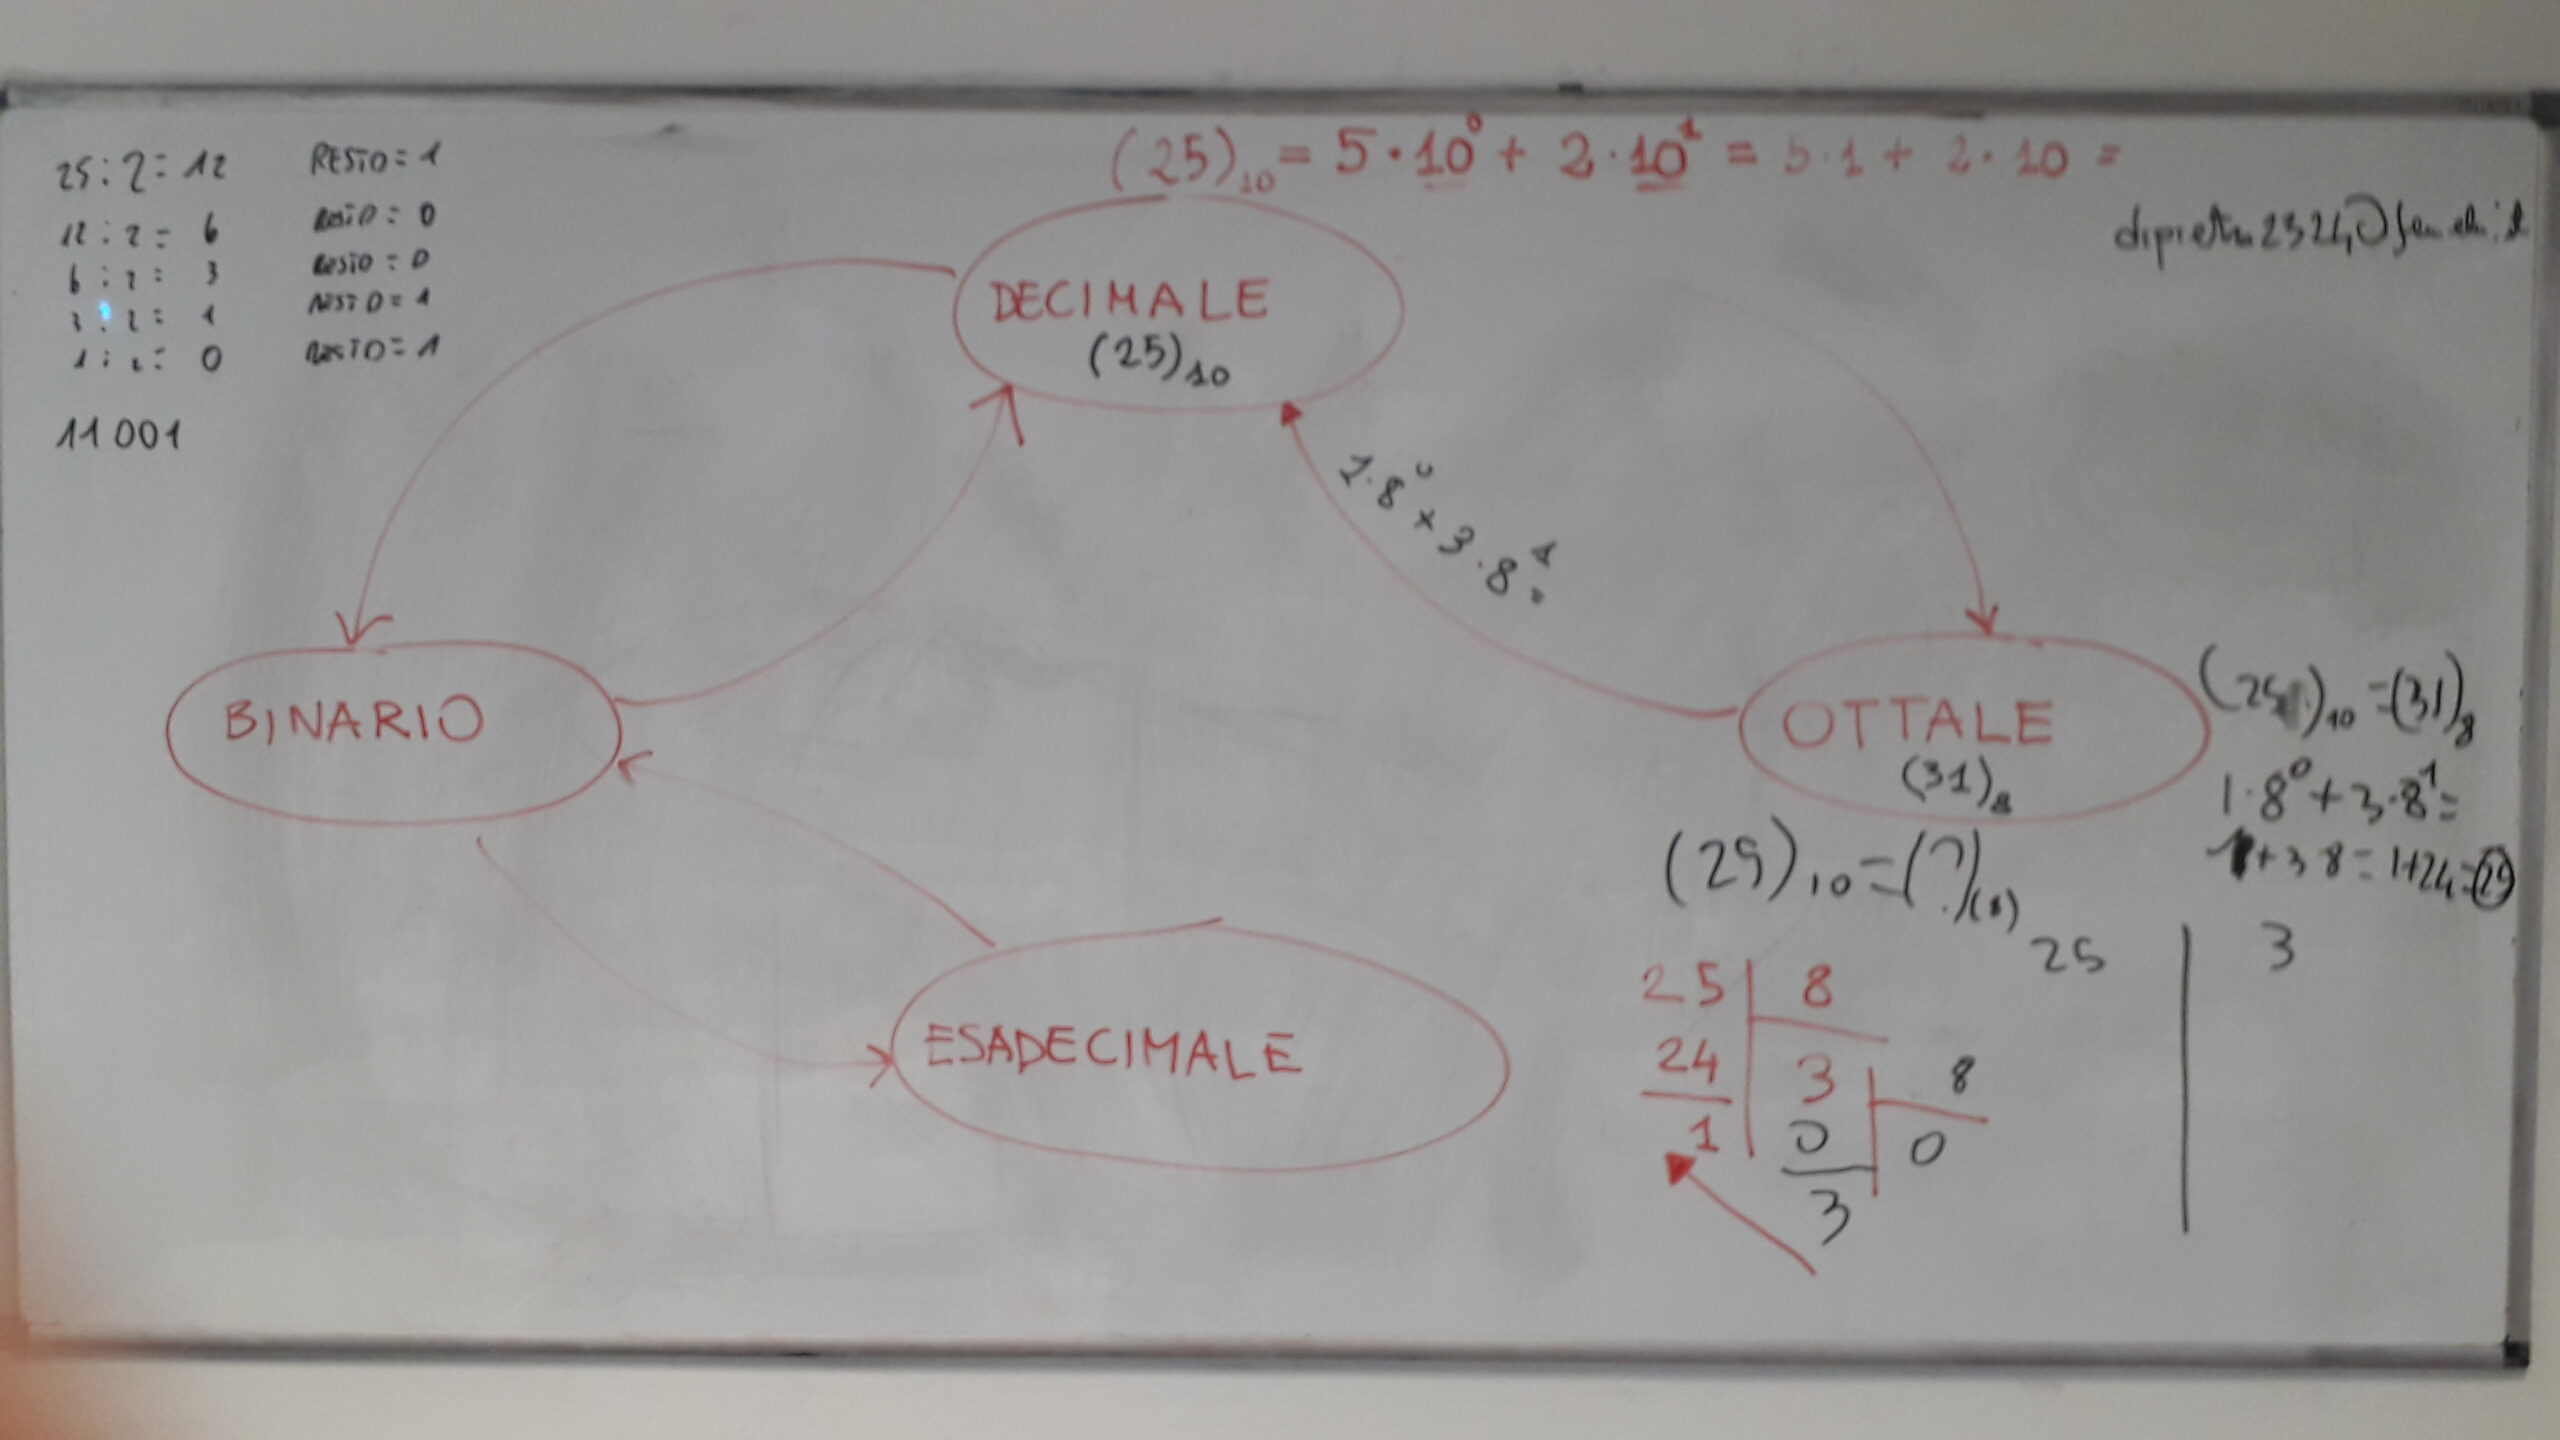 25 : 2 = 12 RESTO = 1
12 : 2 = 6 RESTO = 0
6 : 2 = 3 RESTO = 0
3 : 2 = 1 RESTO = 1
1 : 2 = 0 RESTO = 1
11001
(25)₁₀ = 5·10⁰ + 2·10¹ = 5·1 + 2·10 =
DECIMALE
(25)₁₀
1·8⁰ + 3·8¹ =
BINARIO
OTTALE
(31)₈
(25)₁₀ = (31)₈
1·8⁰ + 3·8¹ =
1 + 3 8 = 1+24 = 25
(25)₁₀ = (?)₍₈₎
25 | 3
ESADECIMALE
25 | 8
24 | 3 | 8
1 | 0 | 0
3